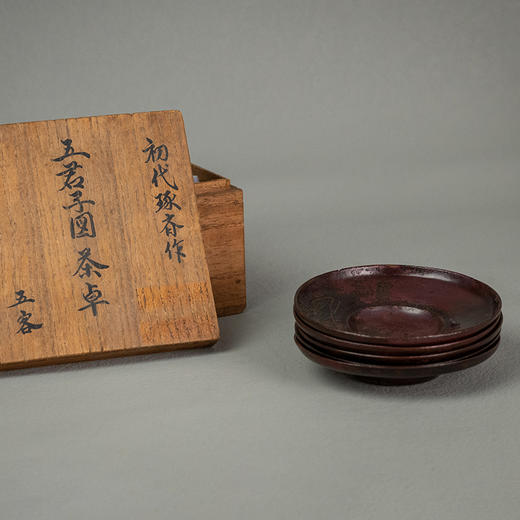 初代琢斎作
五君子図 茶卓
五客